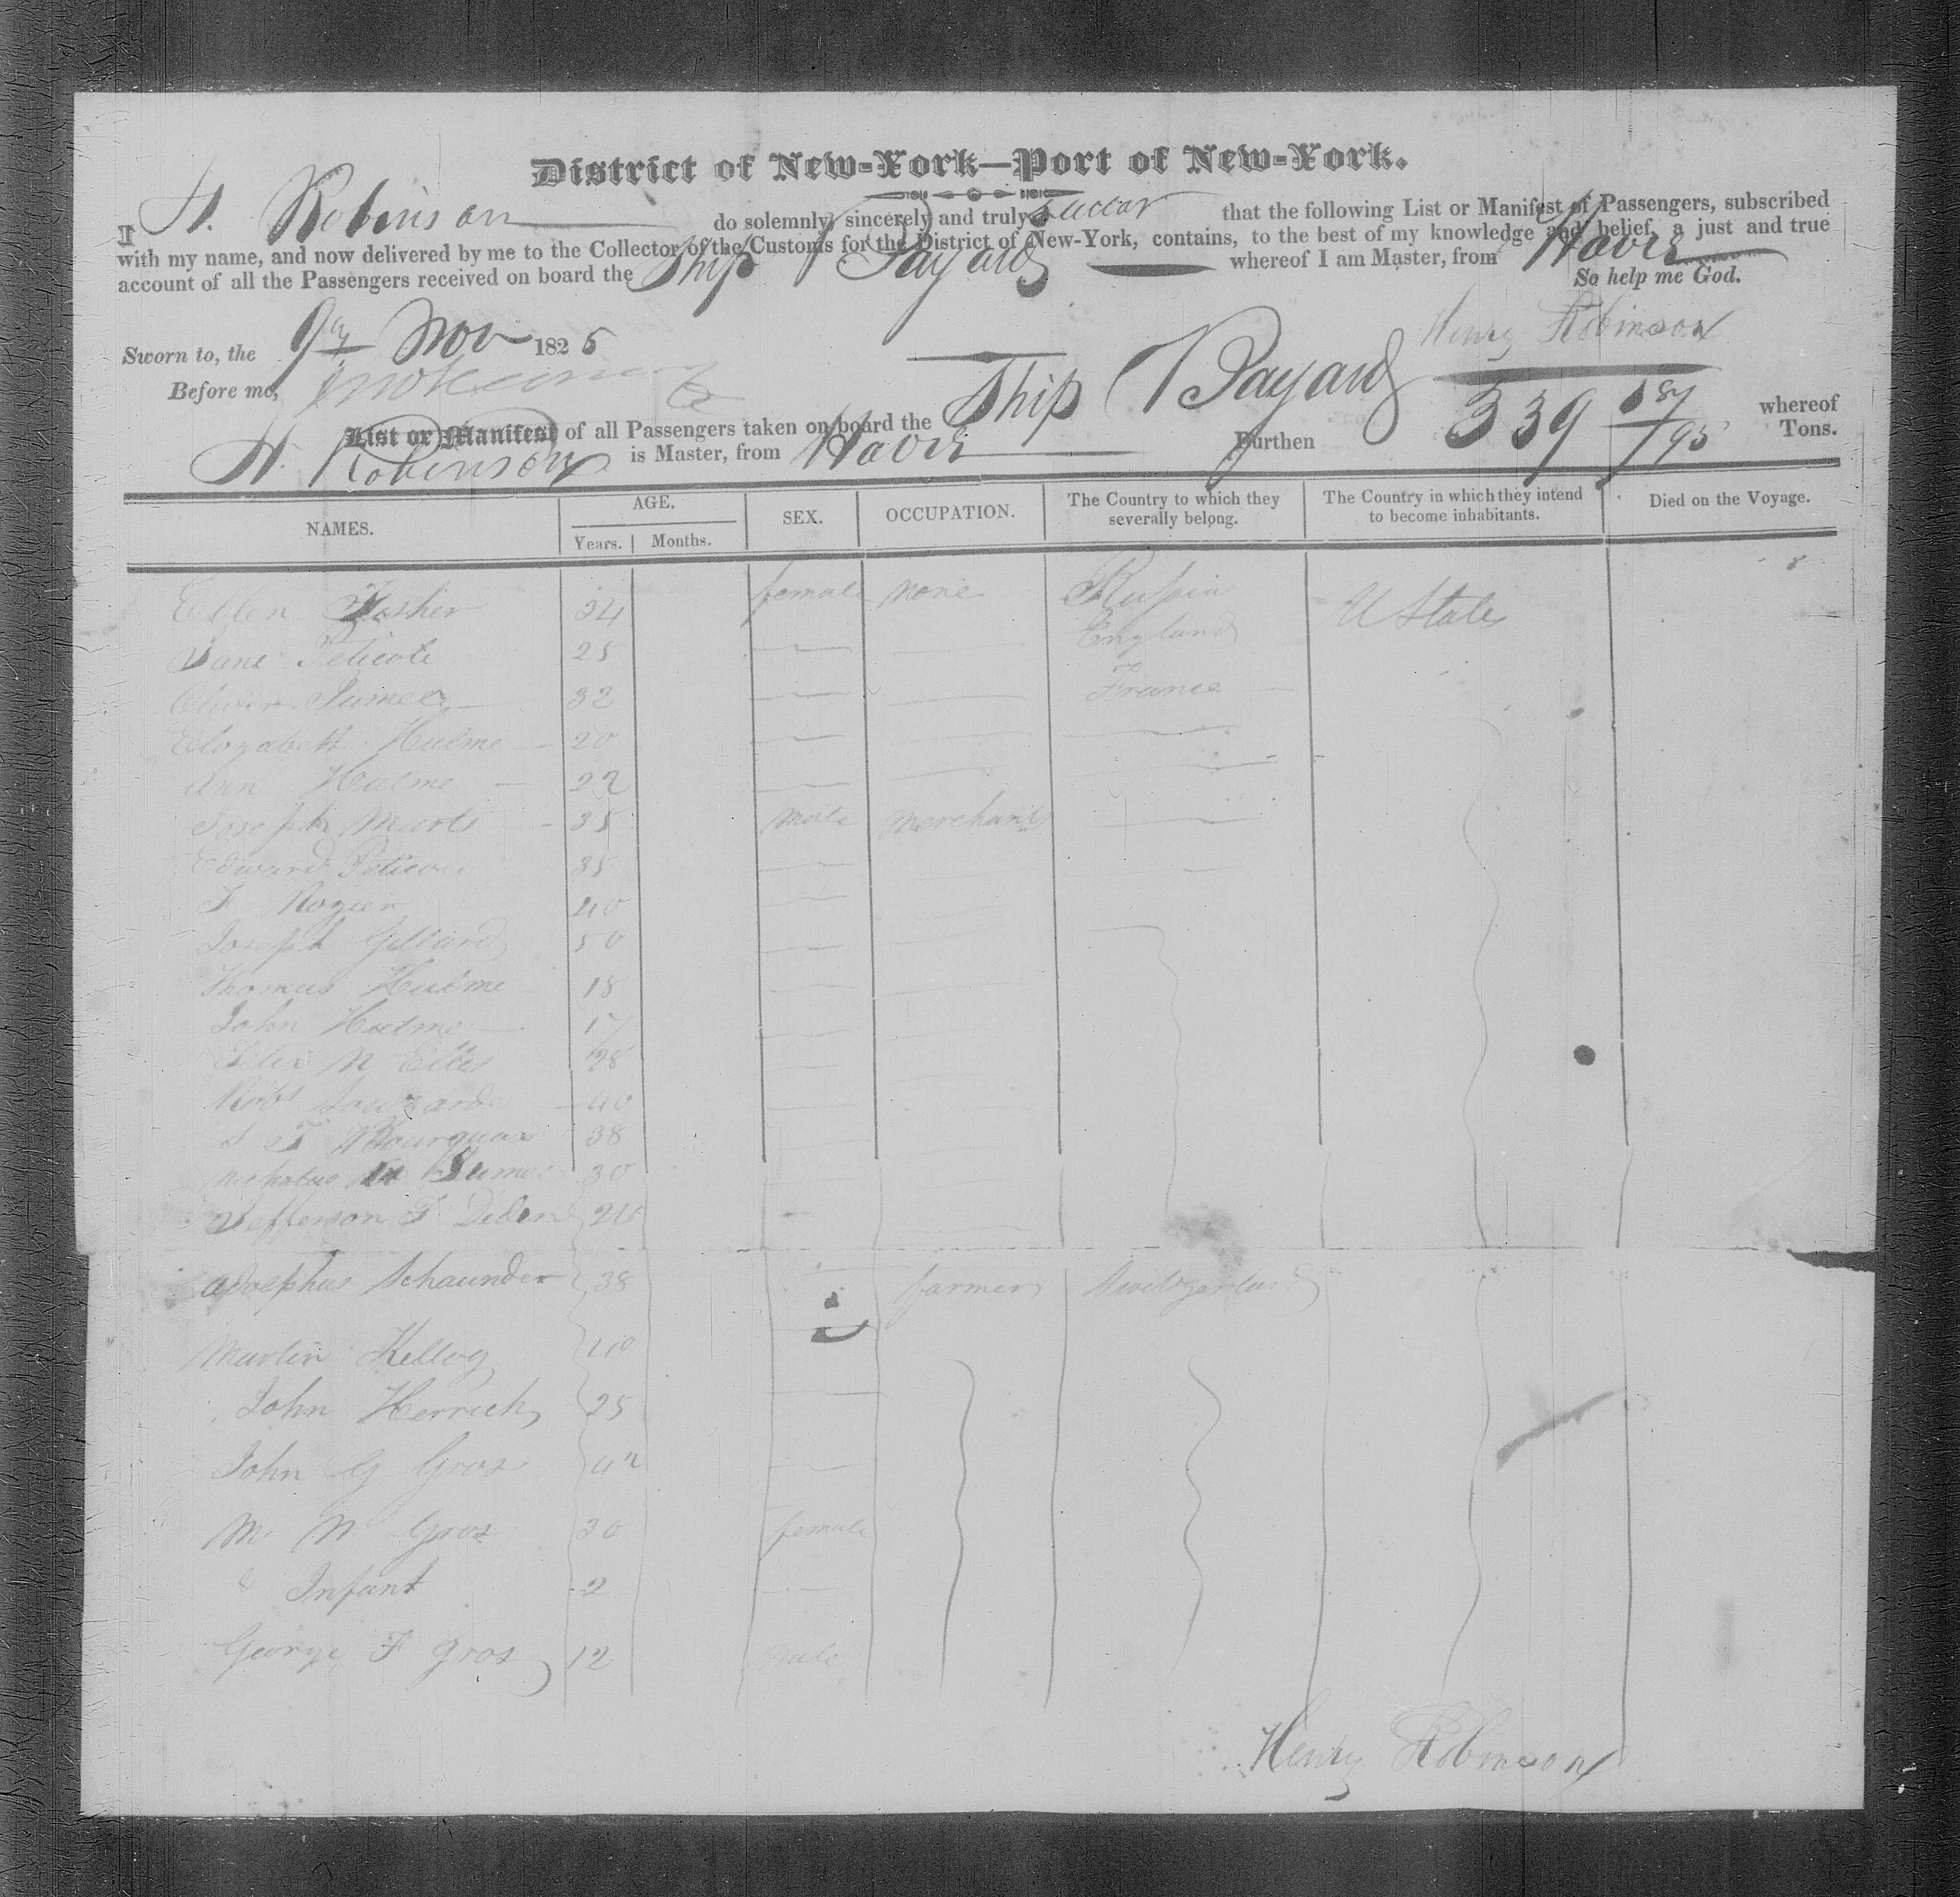 District of New-York—Port of New-York.
I H. Robinson do solemnly, sincerely and truly swear that the following List or Manifest of Passengers, subscribed
with my name, and now delivered by me to the Collector of the Customs for the District of New-York, contains, to the best of my knowledge and belief, a just and true
account of all the Passengers received on board the Ship Bayard whereof I am Master, from Havre
So help me God.
Sworn to, the 9th Nov 1825 Henry Robinson
Before me,
List or Manifest of all Passengers taken on board the Ship Bayard whereof
H. Robinson is Master, from Havre Burthen 339 /95 Tons.
NAMES. AGE. Years. Months. SEX. OCCUPATION. The Country to which they severally belong. The Country in which they intend to become inhabitants. Died on the Voyage.
Ellen 24 female none Russia U States
Jane Peticote 25 England
32 France
Elizabeth Hulme 20
Ann Hulme 22
Joseph Marts 35 male merchants
Edward 35
F Rozier 40
Joseph Gillard 50
Thomas Hulme 18
John Hulme 17
28
Robt 40
38
30
Jefferson F 24
Adolphus Schaunder 38 farmers Switzerland
Martin Kellog 40
John Herrick 25
John G Gros 42
M N Gros 30 female
& Infant 2
George F Gros 12 male
Henry Robinson